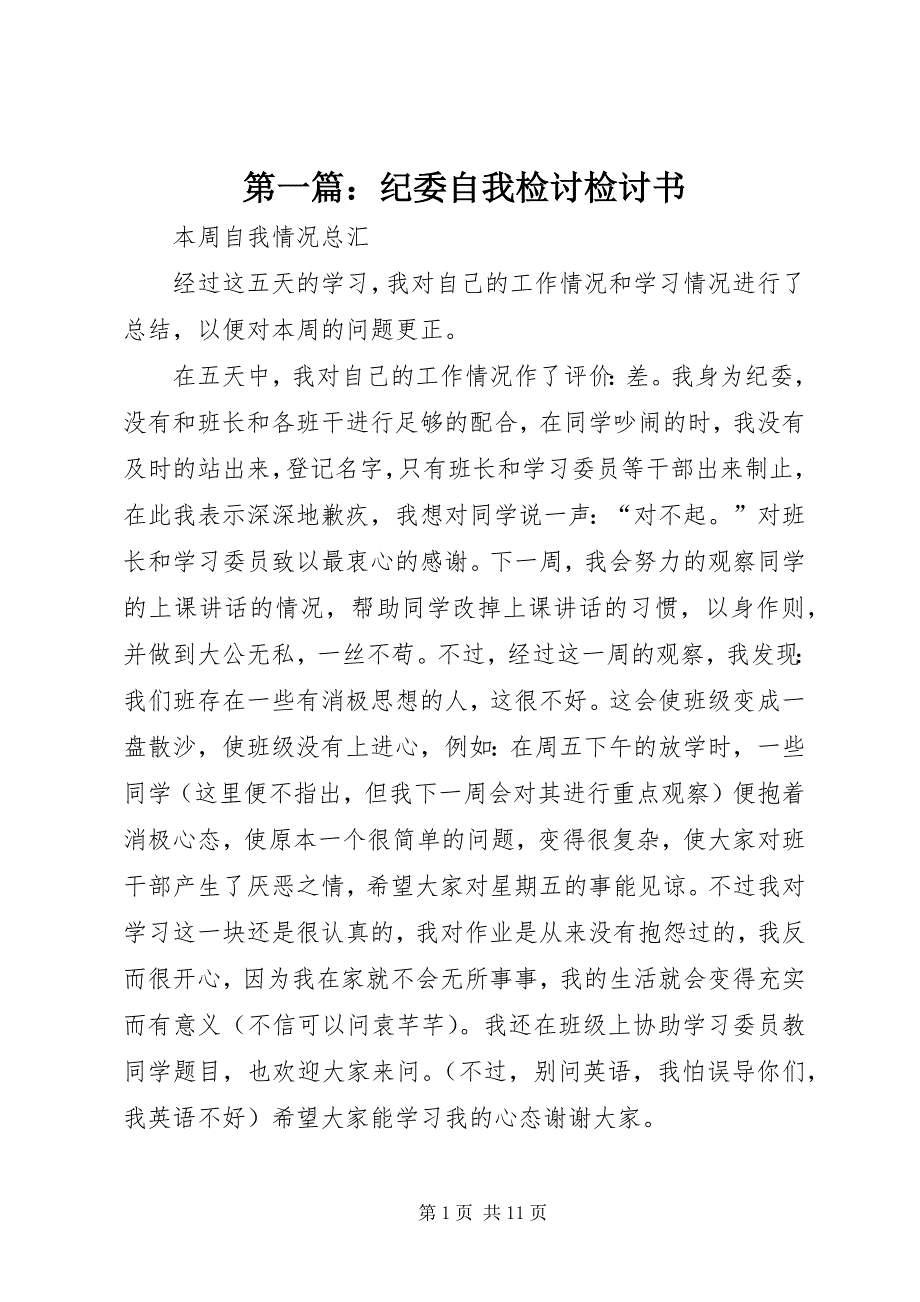 第一篇：纪委自我检讨检讨书
本周自我情况总汇
经过这五天的学习，我对自己的工作情况和学习情况进行了
总结，以便对本周的问题更正。
在五天中，我对自己的工作情况作了评价：差。我身为纪委，
没有和班长和各班干进行足够的配合，在同学吵闹的时，我没有
及时的站出来，登记名字，只有班长和学习委员等干部出来制止，
在此我表示深深地歉疚，我想对同学说一声：“对不起。”对班
长和学习委员致以最衷心的感谢。下一周，我会努力的观察同学
的上课讲话的情况，帮助同学改掉上课讲话的习惯，以身作则，
并做到大公无私，一丝不苟。不过，经过这一周的观察，我发现：
我们班存在一些有消极思想的人，这很不好。这会使班级变成一
盘散沙，使班级没有上进心，例如：在周五下午的放学时，一些
同学（这里便不指出，但我下一周会对其进行重点观察）便抱着
消极心态，使原本一个很简单的问题，变得很复杂，使大家对班
干部产生了厌恶之情，希望大家对星期五的事能见谅。不过我对
学习这一块还是很认真的，我对作业是从来没有抱怨过的，我反
而很开心，因为我在家就不会无所事事，我的生活就会变得充实
而有意义（不信可以问袁芊芊）。我还在班级上协助学习委员教
同学题目，也欢迎大家来问。（不过，别问英语，我怕误导你们，
我英语不好）希望大家能学习我的心态谢谢大家。
第 1 页 共 11 页